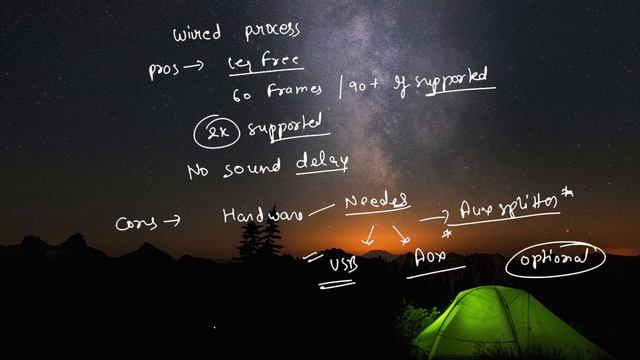 wired process
pros → leg free
60 frames / 90+ if supported
2k supported
No sound delay
Cons → Hardware Needed → Aux splitter*
USB Aux* optional